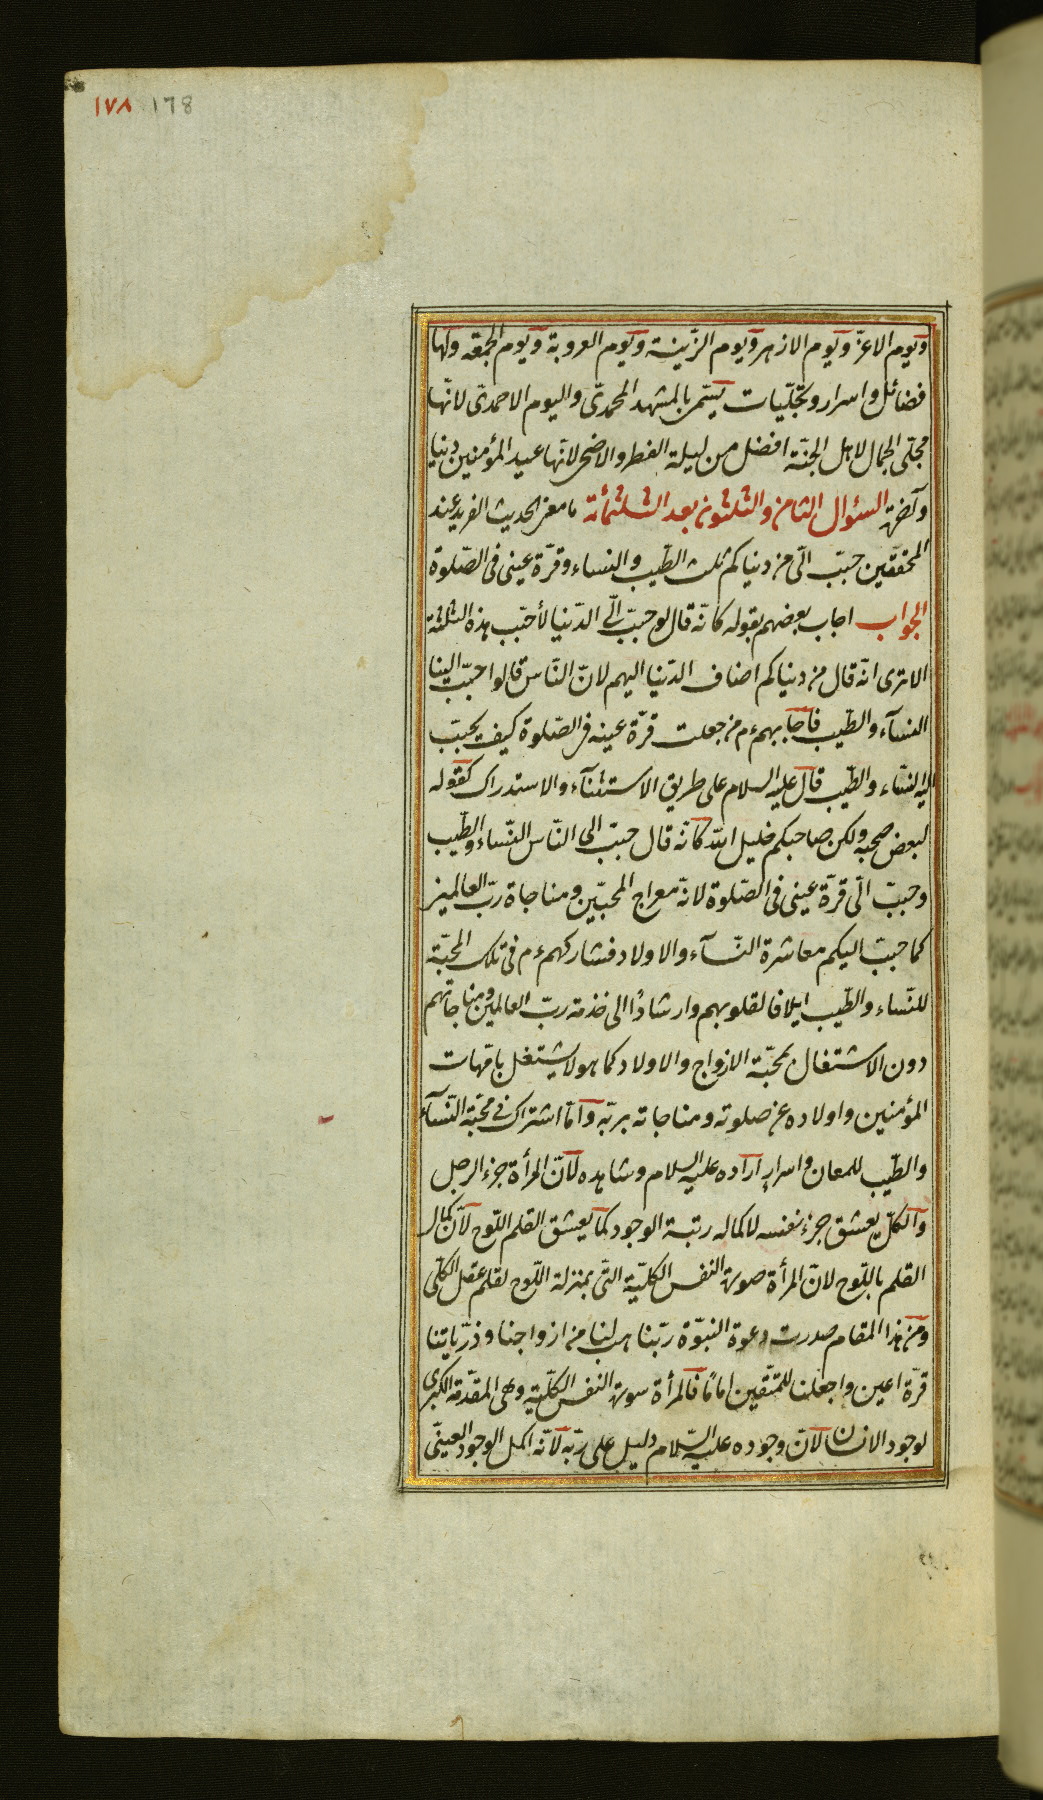 ١٧٨ 178
ويوم الاعزّ ويوم الازهر ويوم الزّينة ويوم العروبة ويوم الجمعة ولها
فضائل واسرار وتجلّيات يسمّى بالمشهد المحمدىّ واليوم الاحمدىّ لانّها
مجلّى الجمال لاهل الجنّة افضل من ليلة الفطر والاضحى لانّها عيد المؤمنين دنيا
وآخرة السؤال الثامن والثلثون بعد الثلثمأئة ما معنى الحديث الفريد عند
المحققين حبّب الىّ من دنياكم ثلث الطّيب والنساء وقرّة عينى فى الصّلوة
الجواب اجاب بعضهم بقوله كانّه قال لو حبّب الىّ الدّنيا لأحبّب هذه الثلثة
الا ترى انّه قال من دنياكم اضاف الدّنيا اليهم لانّ النّاس قالوا حبّب الينا
النسآء والطّيب فاجابهم ءم من جعلت قرّة عينه فى الصّلوة كيف يحبّب
اليه النسّاء والطّيب قال عليه السلام على طريق الاستثنآء والاستدراك كقوله
لبعض صحبه ولكن صاحبكم خليل الله كانّه قال حبّب الى النّاس النّساء والطّيب
وحبّب الىّ قرّة عينى فى الصّلوة لانّه معراج المحبّين ومناجاة ربّ العالمين
كما حبّب اليكم معاشرة النسّآء والاولاد فشاركهم ءم فى تلك المحبّة
للنّساء والطّيب ايلافا لقلوبهم وارشادًا الى خدمة ربّ العالمين ومناجاتهم
دون الاشتغال بمحبّة الازواج والاولاد كما هو لا يشتغل بامّهات
المؤمنين واولاده عن صلوته ومناجاته بربّه وامّا اشتراك فى محبّة النّسآء
والطّيب للمعان واسرار اراده عليه السلام وشاهده لانّ المرأة جزء الرجل
والكلّ يعشق جزء نفسه لاكماله رتبة الوجود كما يعشق القلم اللّوح لانّ كمال
القلم باللّوح لانّ المرأة صورة النفس الكليّة التّى بمنزلة اللّوح لقلم عقل الكلّى
ومن هذا المقام صدرت دعوة النبوّة ربّنا هب لنا من ازواجنا وذرّياتنا
قرّة اعين واجعلنا للمتّقين امامًا فالمرأة سورة النفس الكلّية وهى المقدّمة الكبرى
لوجود الانسان لانّ وجوده عليه السّلام دليل على ربّه لانّه اكمل الوجود العينىّ